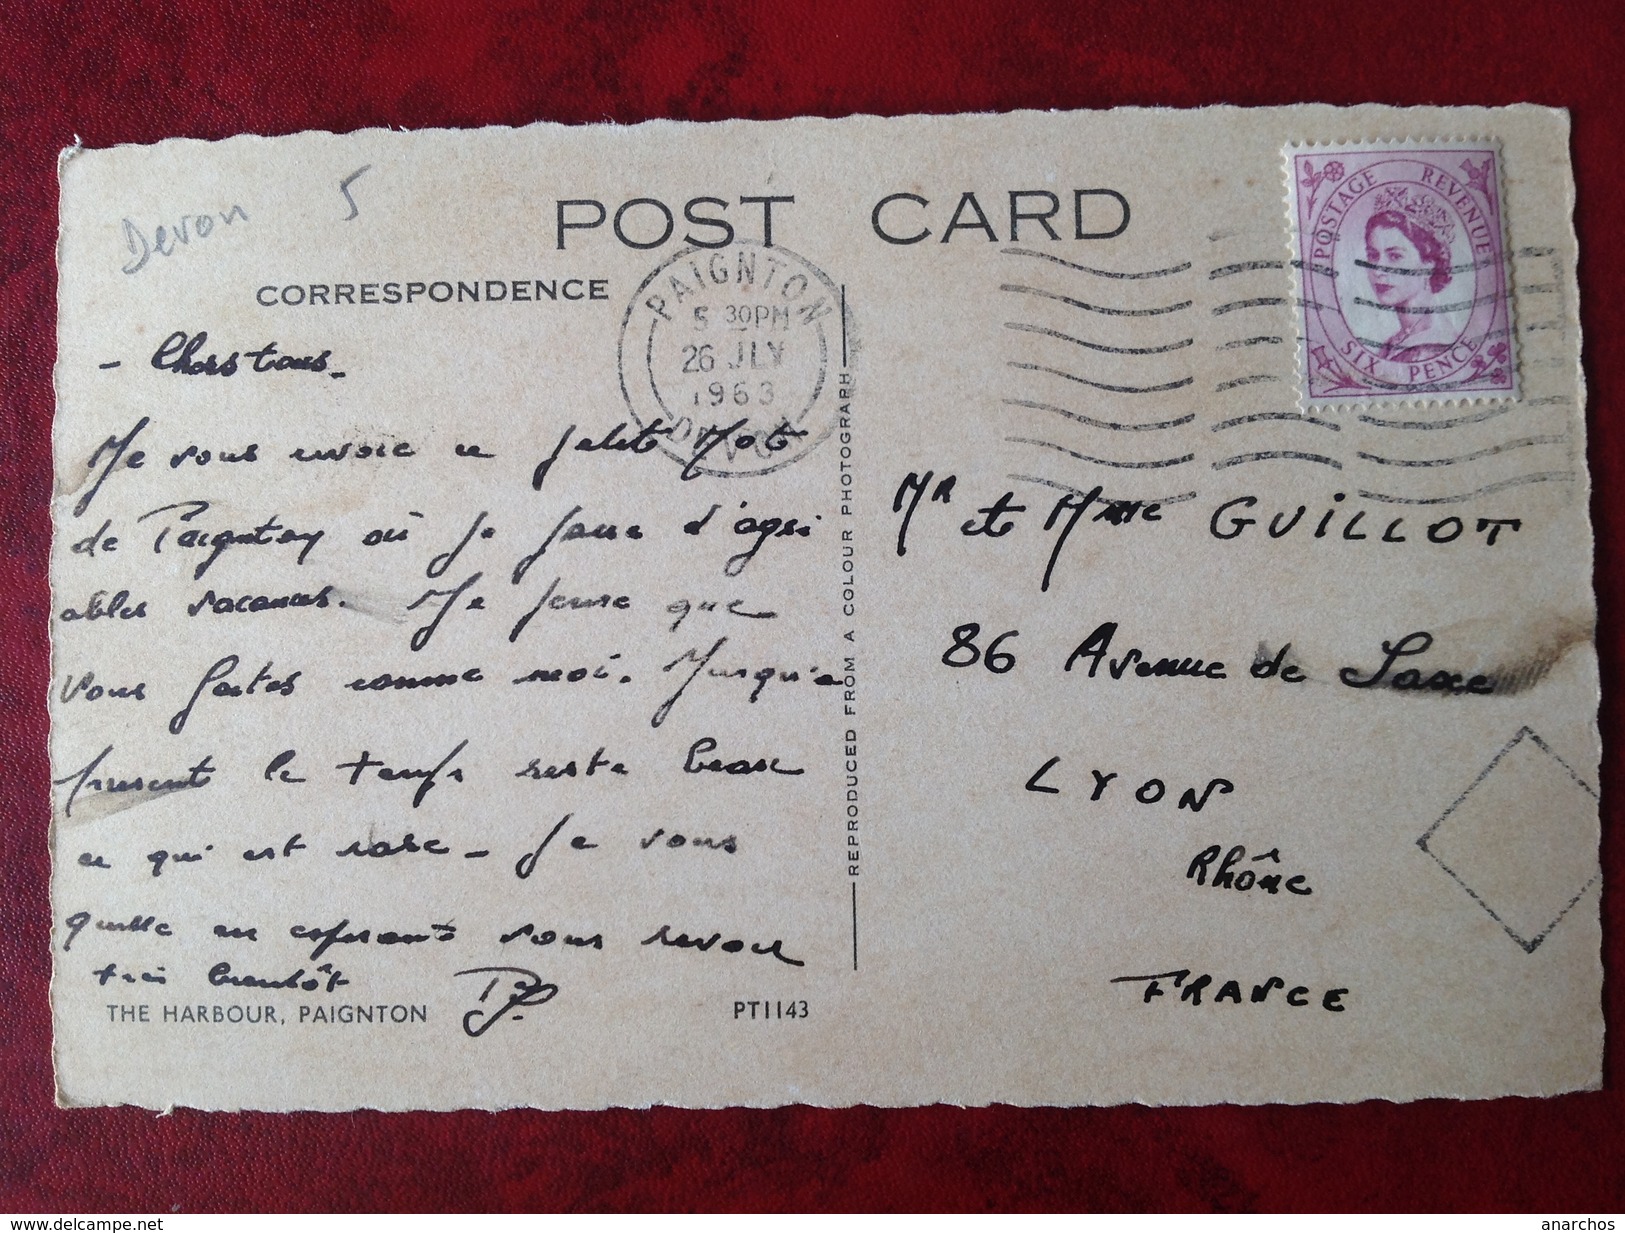 Devon 5
POST CARD
CORRESPONDENCE
PAIGNTON
5 30PM
26 JLY
1963
DEVON
POSTAGE REVENUE
SIX PENCE
- Chers tous -
Je vous envoie ce petit Mot
de Paignton où je passe d'agré
ables vacances. Je pense que
vous faites comme moi. Jusqu'à
présent le temps reste beau
ce qui est rare - Je vous
quitte en espérant vous revoir
très bientôt
THE HARBOUR, PAIGNTON
PT1143
REPRODUCED FROM A COLOUR PHOTOGRAPH
Mr et Mme GUILLOT
86 Avenue de Saxe
LYON
Rhône
FRANCE
www.delcampe.net
anarchos